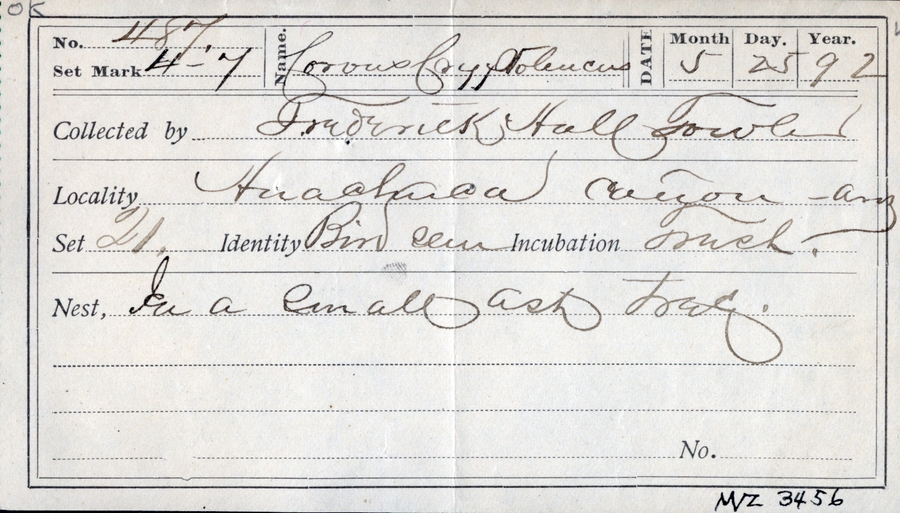 OK
No. 487 Name. Corvus Cryptoleucus DATE Month Day. Year.
Set Mark 4-7 5 25 92
Collected by Frederick Hall Fowler
Locality Huachuca canyon - ariz
Set 21. Identity Bird seen Incubation Fresh.
Nest, In a small ash tree.
No.
MVZ 3456